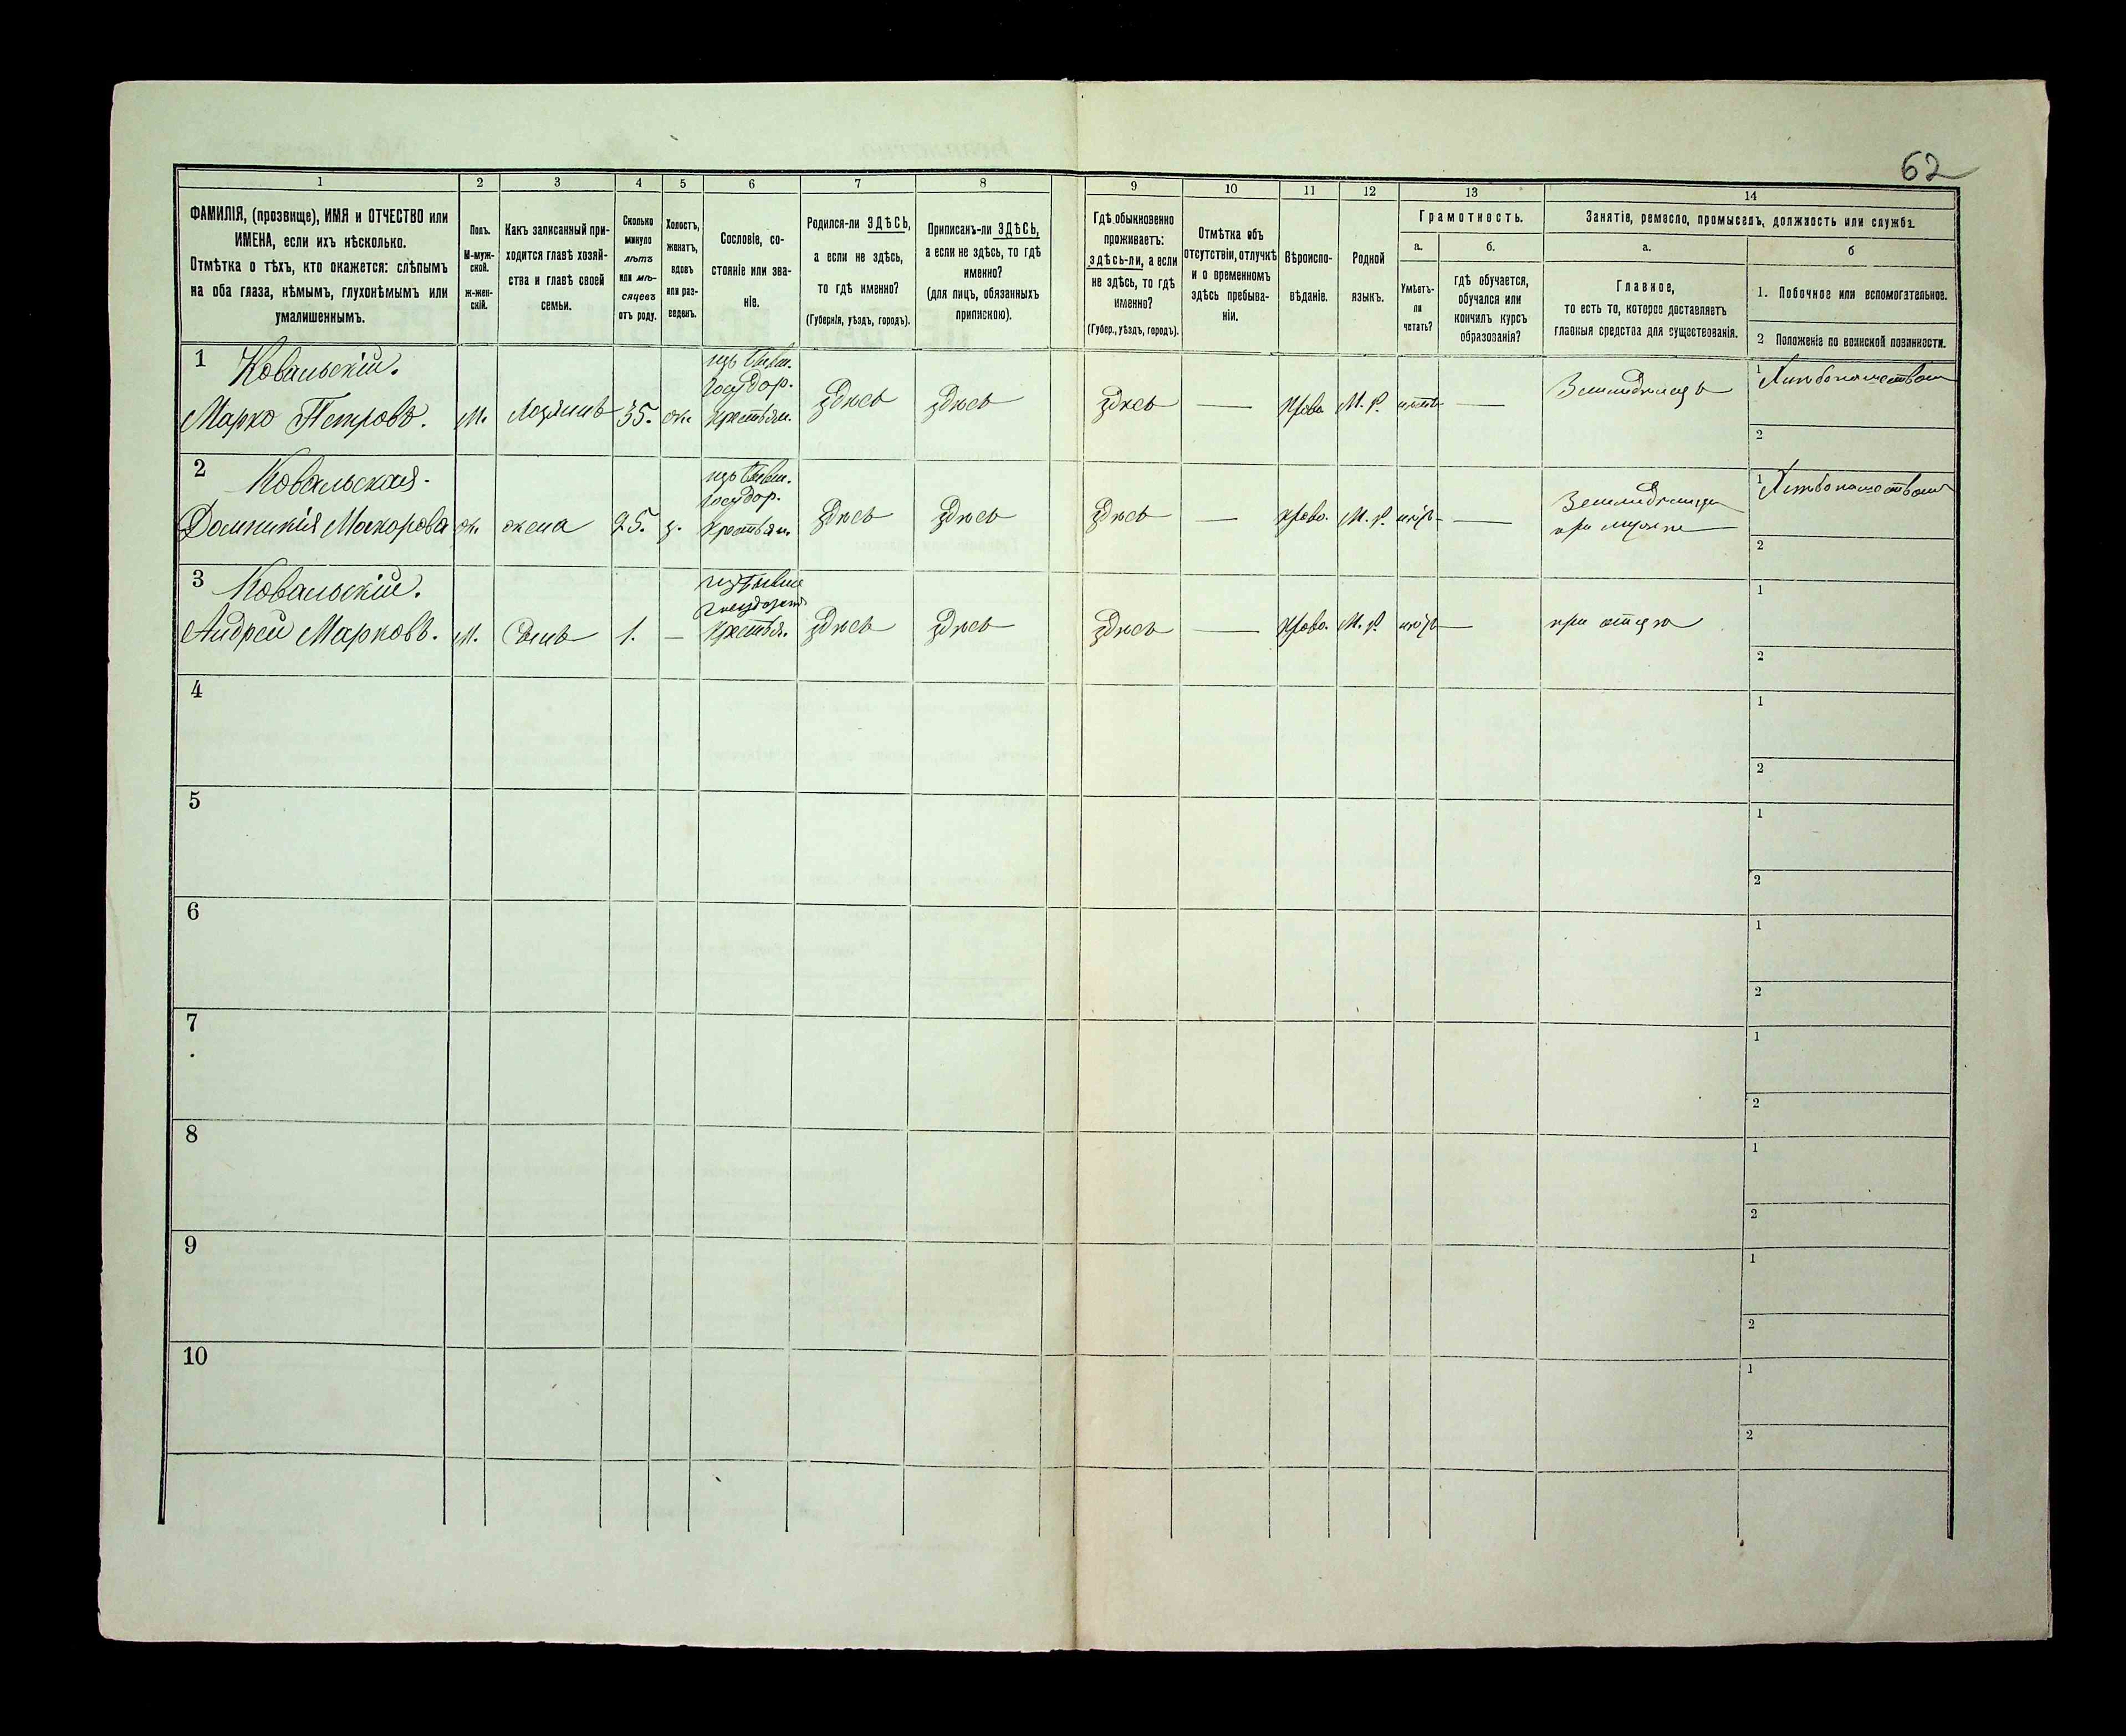 62
1 2 3 4 5 6 7 8 9 10 11 12 13 14
ФАМИЛІЯ, (прозвище), ИМЯ и ОТЧЕСТВО или
ИМЕНА, если ихъ нѣсколько.
Отмѣтка о тѣхъ, кто окажется: слѣпымъ
на оба глаза, нѣмымъ, глухонѣмымъ или
умалишеннымъ.
Полъ.
М-муж-
ской.
ж-жен-
скій.
Какъ записанный при-
ходится главѣ хозяй-
ства и главѣ своей
семьи.
Сколько
минуло
лѣтъ
или мѣ-
сяцевъ
отъ роду.
Холостъ,
женатъ,
вдовъ
или раз-
веденъ.
Сословіе, со-
стояніе или зва-
ніе.
Родился-ли ЗДѢСЬ,
а если не здѣсь,
то гдѣ именно?
(Губернія, уѣздъ, городъ).
Приписанъ-ли ЗДѢСЬ,
а если не здѣсь, то гдѣ
именно?
(для лицъ, обязанныхъ
припискою).
Гдѣ обыкновенно
проживаетъ:
здѣсь-ли, а если
не здѣсь, то гдѣ
именно?
(Губер., уѣздъ, городъ).
Отмѣтка объ
отсутствіи, отлучкѣ
и о временномъ
здѣсь пребыва-
ніи.
Вѣроиспо-
вѣданіе.
Родной
языкъ.
Грамотность.
а.
Умѣетъ-
ли
читать?
б.
гдѣ обучается,
обучался или
кончилъ курсъ
образованія?
Занятіе, ремесло, промыселъ, должность или служба.
а.
Главное,
то есть то, которое доставляетъ
главныя средства для существованія.
б
1. Побочное или вспомогательное.
2 Положеніе по воинской повинности.
1 Ковальскій.
Марко Петровъ. М. Хозяинъ 35. ж.
изъ бывш.
государ.
крестьян.
здѣсь здѣсь здѣсь — Право. М. р. нѣтъ — Земледѣлецъ
1
2
2 Ковальская.
Домникія Макарова ж. жена 25. з.
изъ бывш.
государ.
крестьян.
здѣсь здѣсь здѣсь — Право. М. р. —
при мужѣ
1
2
3 Ковальскій.
Андрей Марковъ. М. Сынъ 1. —
изъ бывш
государст
крестья.
здѣсь здѣсь здѣсь — Право. М. р. — при отцѣ
1
2
4 1
2
5 1
2
6 1
2
7 1
2
8 1
2
9 1
2
10 1
2